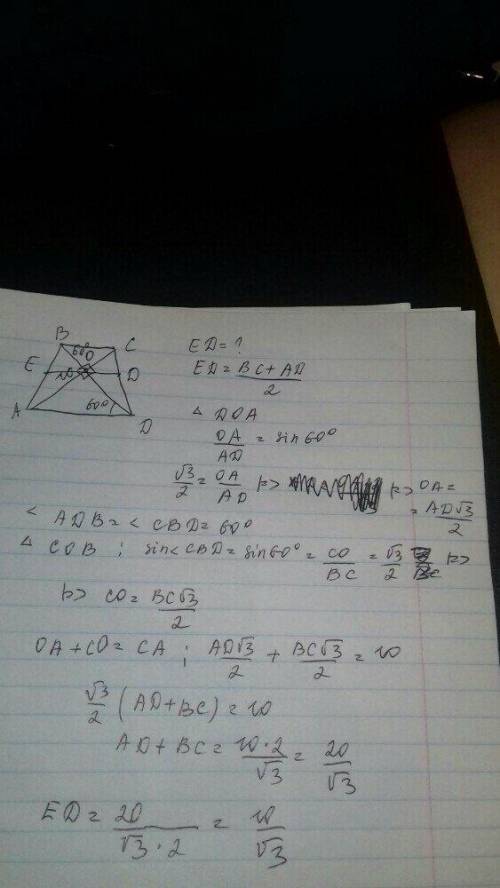 B
60° O C
E 10 D
A 60° D
ED = ?
ED = BC + AD / 2
△ DOA
OA / AD = sin 60°
√3 / 2 = OA / AD => => OA =
= AD√3 / 2
< ADB = < CBD = 60°
△ COB ; sin < CBD = sin 60° = CO / BC = √3 / 2 =>
=> CO = BC√3 / 2
OA + CO = CA ; AD√3 / 2 + BC√3 / 2 = 10
√3 / 2 (AD + BC) = 10
AD + BC = 10 · 2 / √3 = 20 / √3
ED = 20 / √3 · 2 = 10 / √3